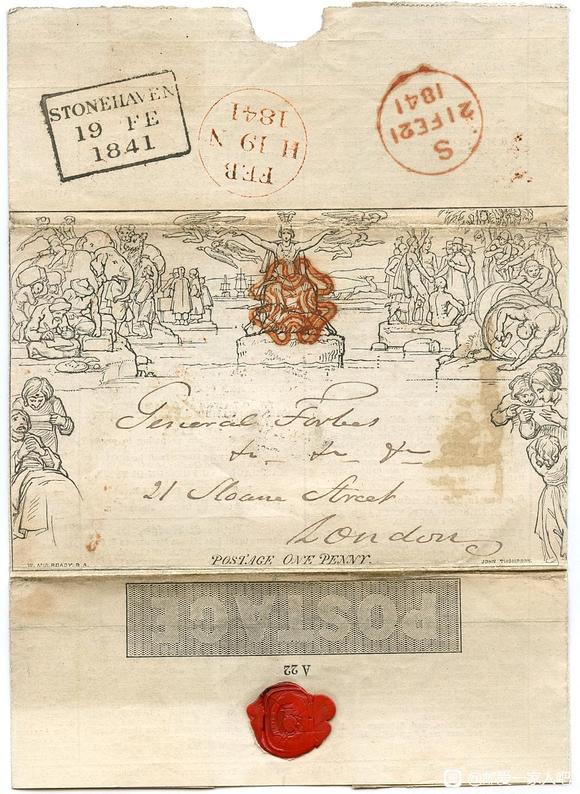 STONEHAVEN
19 FE
1841
FEB
H 19 N
1841
S
21 FE 21
1841
General Forbes
&c &c &c
21 Sloane Street
London
W. MULREADY. R.A.
POSTAGE ONE PENNY.
JOHN THOMPSON
POSTAGE
A 22